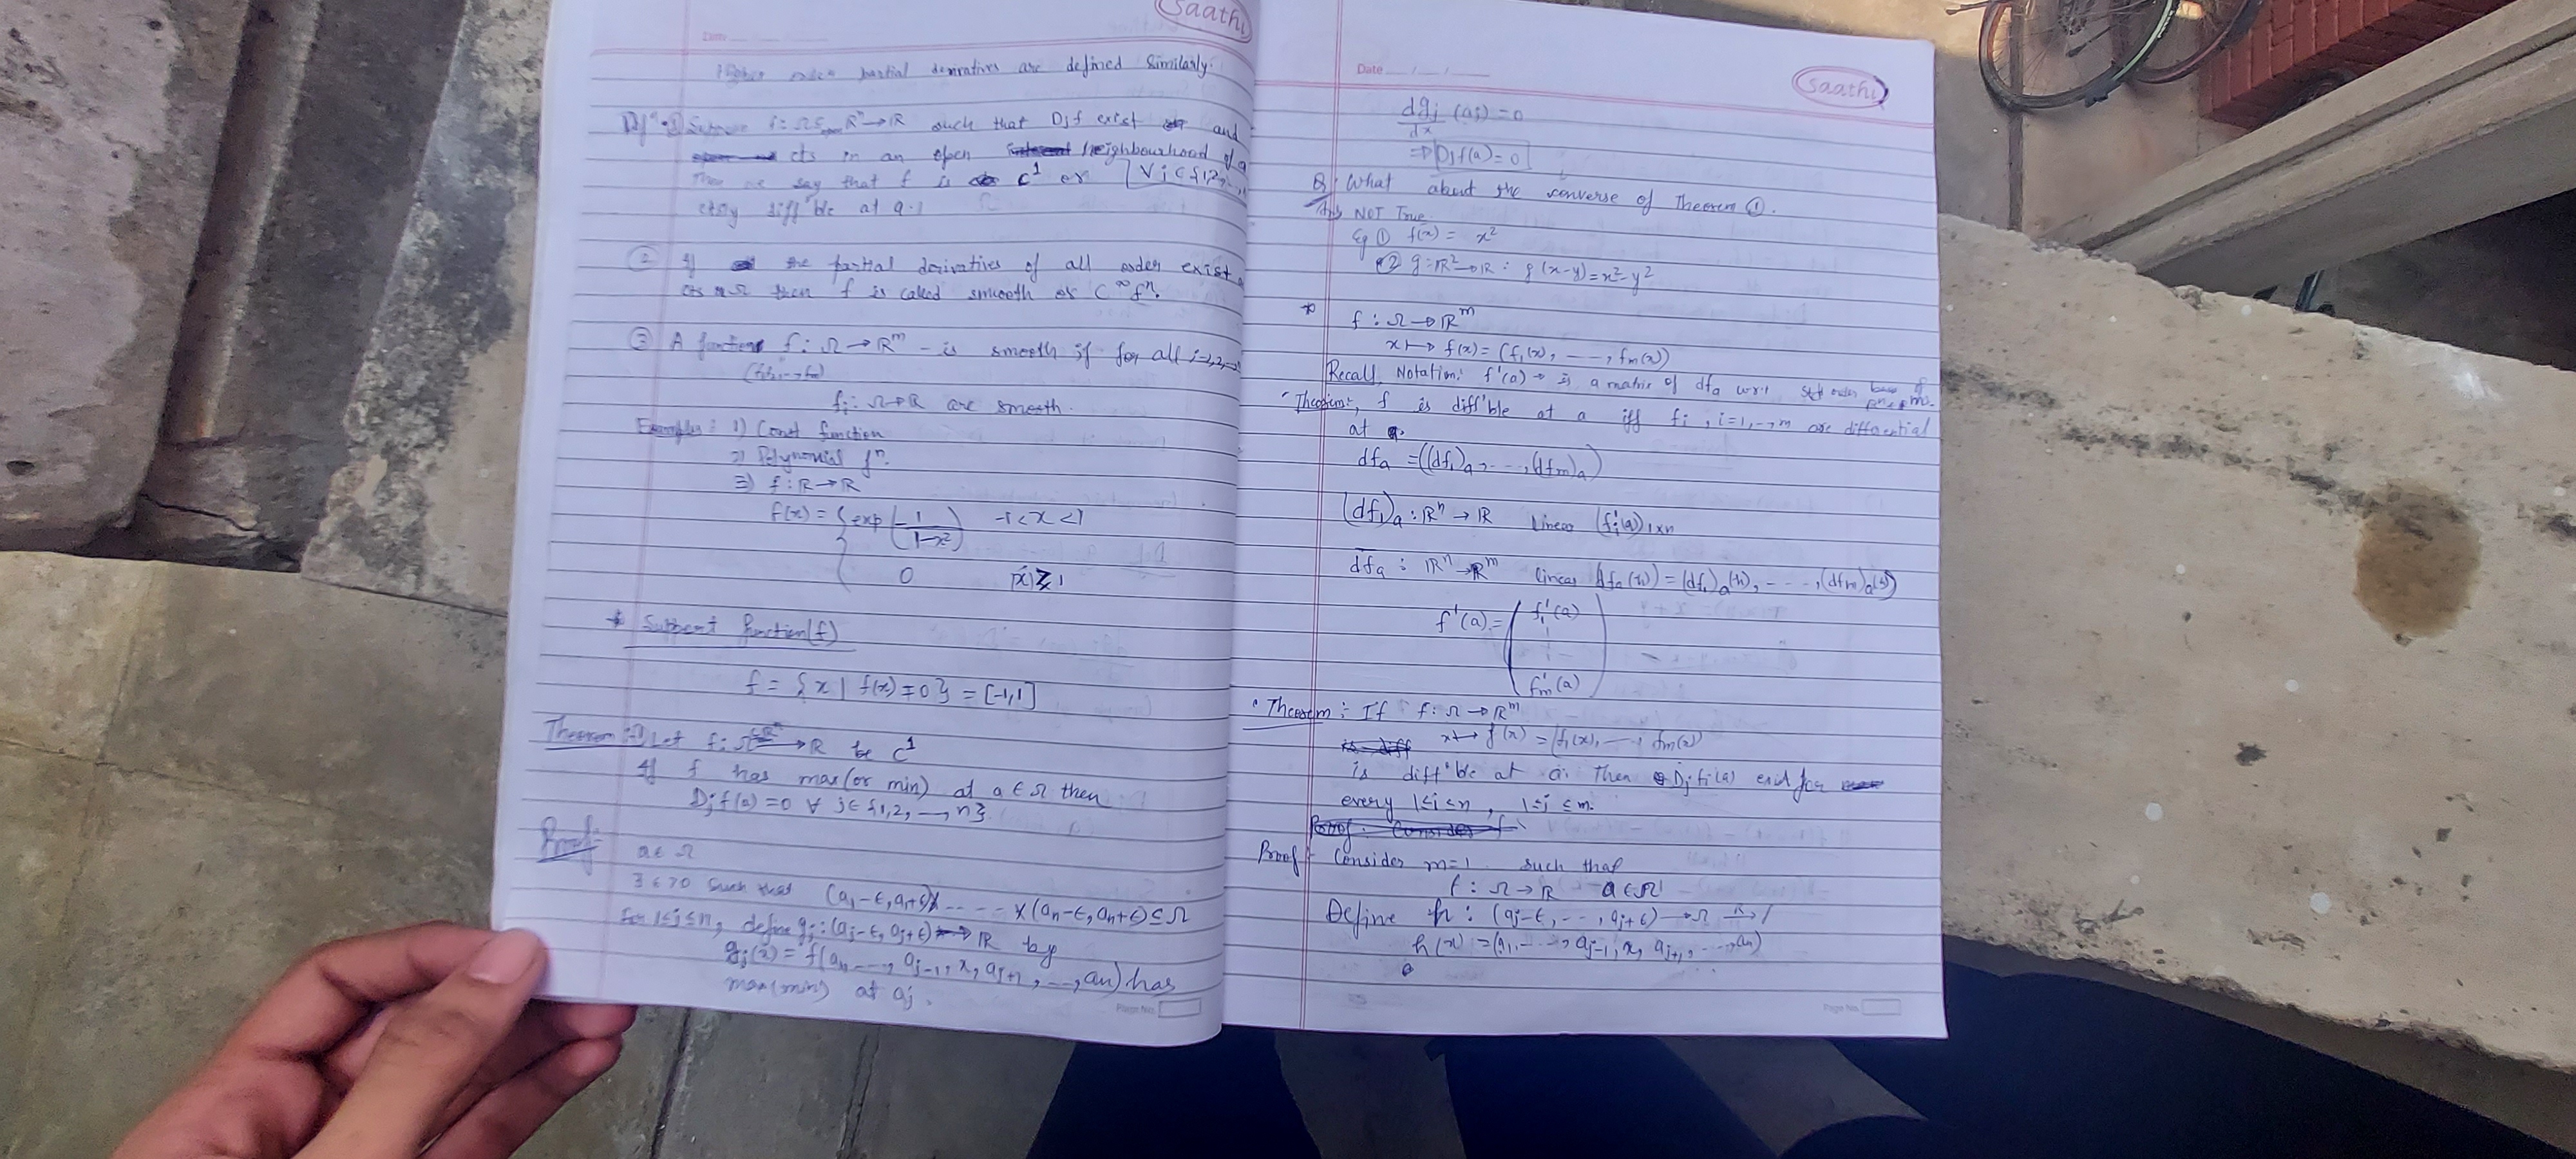 Saathi
Date
Higher order partial derivatives are defined similarly.
Suppose f: Ω ⊆ Rⁿ → R such that Djf exist and
cts in an open neighbourhood of a
Then we say that f is C¹ or
diff'ble at a.
② If the partial derivatives of all order exist &
cts in Ω then f is called smooth or C^∞ fⁿ.
③ A function f: Ω → Rᵐ is smooth if for all i=1,2,
(f₁, ..., fm)
fi: Ω → R are smooth.
Examples: 1) Const function
2) Polynomial fⁿ.
3) f: R → R
f(x) = { exp(-1/(1-x²)) -1 < x < 1
0 |x| ≥ 1
* Support function(f)
f = {x | f(x) ≠ 0} = [-1,1]
Theorem: ① Let f: Ω ⊆ Rⁿ → R be C¹
If f has max (or min) at a ∈ Ω then
Djf(a) = 0 ∀ j ∈ {1,2, --, n}
Proof:-
a ∈ Ω
∃ ε > 0 such that (a₁-ε, a₁+ε) x ---- x (an-ε, an+ε) ⊆ Ω
for 1 ≤ j ≤ n, define gj: (aj-ε, aj+ε) → R by
gj(x) = f(a₁, ---, aj-1, x, aj+1, --, an) has
max(min) at aj.
Page No.
Saathi
Date
dgj/dx (aj) = 0
⇒ Djf(a) = 0
Q. What about the converse of Theorem ①.
This NOT True
eg ① f(x) = x²
② g: R² → R : g(x-y) = x²-y²
* f: Ω → Rᵐ
x ↦ f(x) = (f₁(x), ---, fm(x))
Recall Notation: f'(a) → is a matrix of dfa wrt
Theorem:, f is diff'ble at a iff fi, i=1, --, m are differential
at a.
dfa = ((df₁)a, ---, (dfm)a)
(dfi)a: Rⁿ → R linear (fi'(a))1xn
dfa: Rⁿ → Rᵐ linear dfa(h) = (df₁)a(h), ---, (dfm)a(h)
f'(a) = ( f₁'(a)
fm'(a) )
Theorem: If f: Ω → Rᵐ
x ↦ f(x) = (f₁(x), --, fm(x))
is diff'ble at a. Then Djfi(a) exist for
every 1 ≤ j ≤ n, 1 ≤ i ≤ m.
Proof:- Consider m=1 such that
f: Ω → R a ∈ Ω
Define h: (aj-ε, --, aj+ε) → Ω
h(x) := (a₁, ---, aj-1, x, aj+1, ---, an)
Page No.